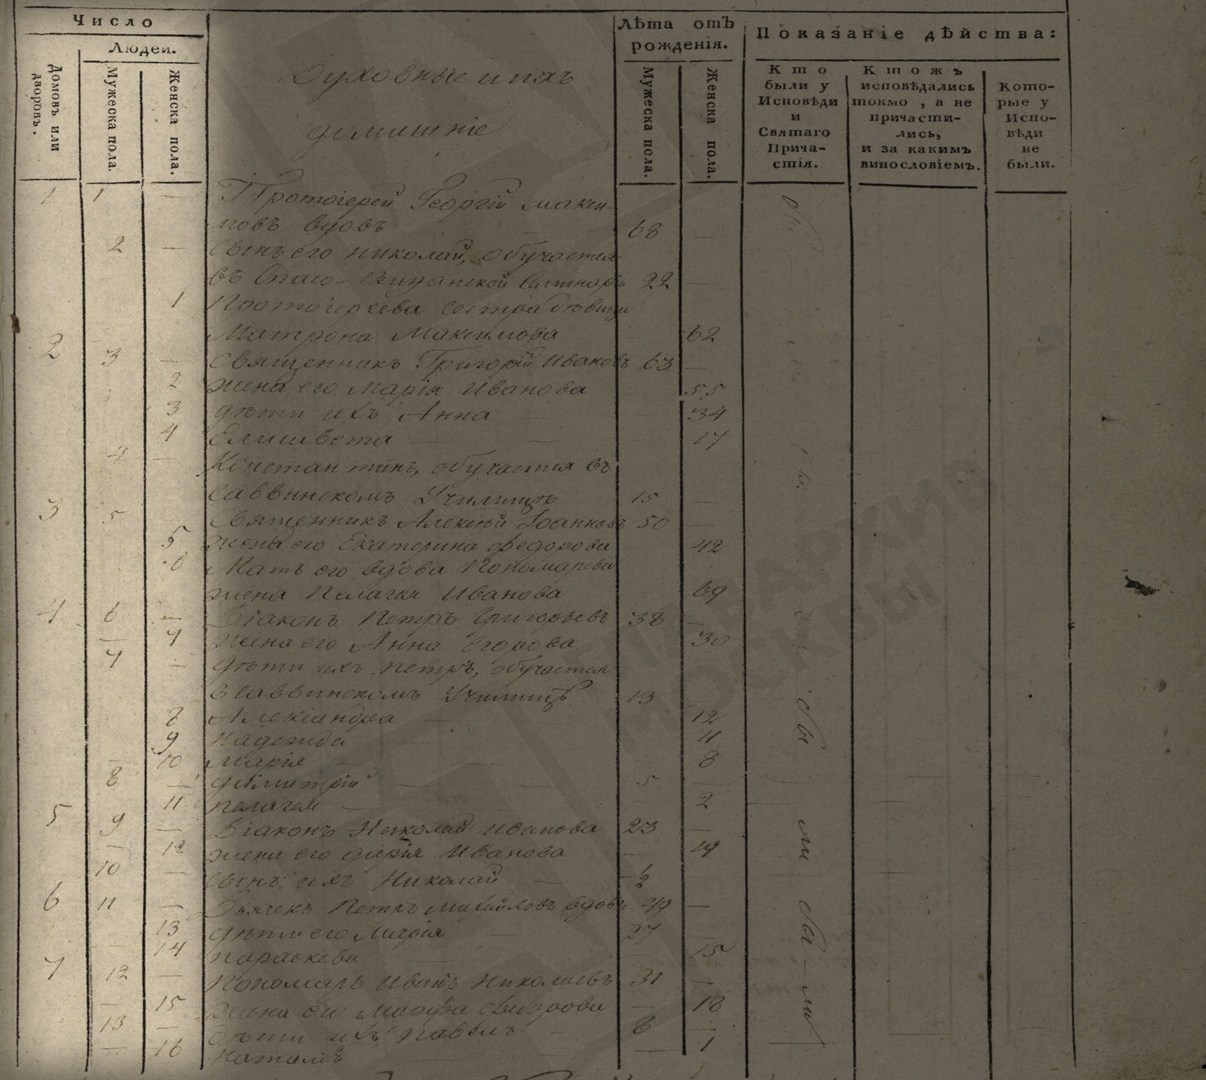 Число
Людей.
Домовъ или дворовъ.
Мужеска пола.
Женска пола.
Лѣта отъ рожденія.
Мужеска пола.
Женска пола.
Показаніе дѣйства:
Кто были у Исповѣди и Святаго Причастія.
Ктожъ исповѣдались токмо, а не причастились, и за какимъ винословіемъ.
Которые у Исповѣди не были.
Духовные и ихъ
домашніе
1 1 — Протоіерей Георгій Макси-
мовъ вдовъ 68 —
2 — Сынъ его Николай, обучается
въ Спасо-Виѳанской Семинаріи 22 —
1 Протоіереева сестра дѣвица
Матрона Максимова 62
2 3 — Священникъ Григорій Ивановъ 63 —
2 жена его Марія Иванова 55
3 дѣти ихъ Анна 34
4 Елисавета 17
4 — Константинъ, обучается въ
Саввинскомъ Училищѣ 15 —
3 5 Священникъ Алексѣй Іоанновъ 50 —
5 Жена его Екатерина Федорова 42
6 Мать его вдова Пономарева
жена Пелагея Иванова 69
4 6 — Діаконъ Петръ Григорьевъ 38 —
7 Жена его Анна Егорова 30
7 — дѣти ихъ Петръ, обучается
в Саввинскомъ Училищѣ 13
8 Александра 12
9 Надежда 11
10 Марія 8
8 — Димитрій 5
11 Пелагея 2
5 9 — Діаконъ Николай Иванова 23 —
12 жена его Дарія Иванова 19
10 — сынъ ихъ Николай ½
6 11 — Дьячекъ Петръ Михайловъ вдовъ 49 —
13 дѣти его Марія 27
14 Параскева 15
7 12 — Пономарь Иванъ Николаевъ 31 —
15 Жена его Марфа 18
13 — дѣти ихъ Павелъ 8 —
16 Наталія — 1
ГЛАВАРХИВ
МОСКВЫ